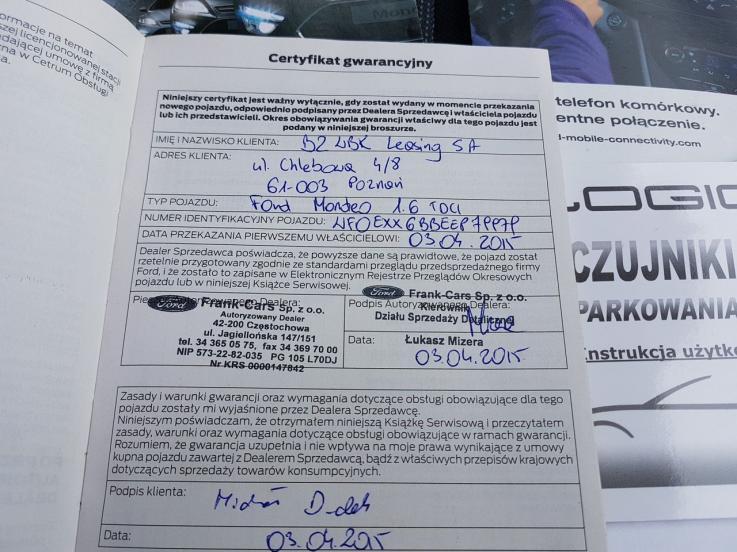 ormacje na temat
szej licencjonowanej stacji
dającej umowę z firmą
na w Cetrum Obsługi
a.
Certyfikat gwarancyjny
Niniejszy certyfikat jest ważny wyłącznie, gdy został wydany w momencie przekazania
nowego pojazdu, odpowiednio podpisany przez Dealera Sprzedawcę i właściciela pojazdu
lub ich przedstawicieli. Okres obowiązywania gwarancji właściwy dla tego pojazdu jest
podany w niniejszej broszurze.
IMIĘ I NAZWISKO KLIENTA: BZ WBK Leasing SA
ADRES KLIENTA: ul. Chlebowa 4/8
61-003 Poznań
TYP POJAZDU: Ford Mondeo 1.6 TDCI
NUMER IDENTYFIKACYJNY POJAZDU:
DATA PRZEKAZANIA PIERWSZEMU WŁAŚCICIELOWI: 03.04.2015
Dealer Sprzedawca poświadcza, że powyższe dane są prawidłowe, że pojazd został
rzetelnie przygotowany zgodnie ze standardami przeglądu przedsprzedażnego firmy
Ford, i że zostało to zapisane w Elektronicznym Rejestrze Przeglądów Okresowych
pojazdu lub w niniejszej Książce Serwisowej.
Ford Frank-Cars Sp. z o.o.
Autoryzowany Dealer
42-200 Częstochowa
ul. Jagiellońska 147/151
tel. 34 365 05 75, fax 34 369 70 00
NIP 573-22-82-035 PG 105 L70DJ
Nr KRS 0000147842
Ford Frank-Cars Sp. z o.o.
Podpis Autoryzowanego Dealera:
Kierownik
Działu Sprzedaży Detalicznej
Data: Łukasz Mizera
03.04.2015
Zasady i warunki gwarancji oraz wymagania dotyczące obsługi obowiązujące dla tego
pojazdu zostały mi wyjaśnione przez Dealera Sprzedawcę.
Niniejszym poświadczam, że otrzymałem niniejszą Książkę Serwisową i przeczytałem
zasady, warunki oraz wymagania dotyczące obsługi obowiązujące w ramach gwarancji.
Rozumiem, że gwarancja uzupełnia i nie wpływa na moje prawa wynikające z umowy
kupna pojazdu zawartej z Dealerem Sprzedawcą, bądź z właściwych przepisów krajowych
dotyczących sprzedaży towarów konsumpcyjnych.
Podpis klienta:
Data: 03.04.2015
telefon komórkowy.
entne połączenie.
l-mobile-connectivity.com
LOGIC
CZUJNIKI
PARKOWANIA
instrukcja użytko